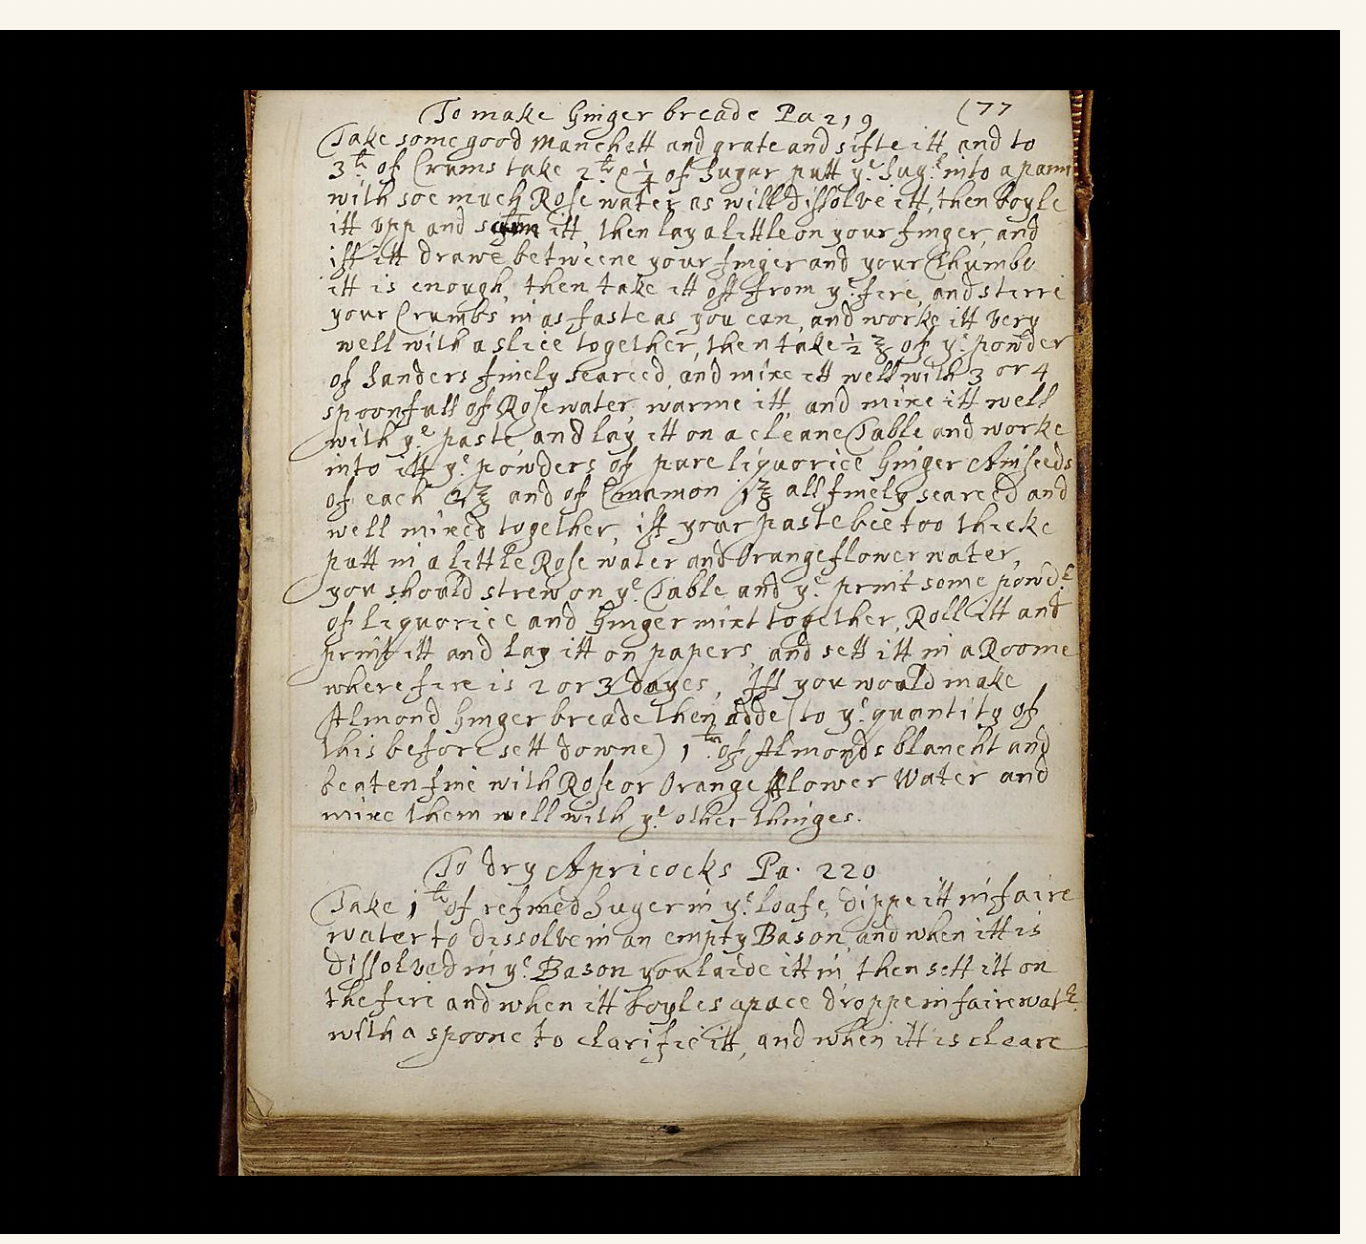 To make Ginger breade Pa 219 (77
Take some good Manchett and grate and sifte itt, and to
3 lb of Crums take 2 lb & 1/4 of Sugar putt ye Sugr into a pann
with soe much Rose water as will dissolve itt, then boyle
itt vpp and itt, then lay a little on your finger, and
iff itt drawe betweene your finger and your Thumbe
itt is enough, then take itt off from ye fire, and stirre
your Crumbs in as faste as you can, and worke itt very
well with a slice together, then take 1/2 ℥ of ye powder
of Sanders finely searced, and mixe itt well with 3 or 4
spoonfull of Rose water, warme itt, and mixe itt well
with ye paste and lay itt on a cleane Table and worke
into itt ye powders of pure liquorice Ginger Aniseeds
of each 2 ℥ and of Cinamon 1 ℥ all finely searced and
well mixed together, iff your paste bee too thicke
putt in a little Rose water and Orange flower water,
you should strew on ye Table and ye print some powdr
of Liquorice and Ginger mixt together, Roll itt and
print itt and lay itt on papers, and sett itt in a Roome
where fire is 2 or 3 dayes, Iff you would make
Almond Ginger breade then adde (to ye quantity of
this before sett downe) 1 lb of Almonds blancht and
beaten fine with Rose or Orange flower Water and
mixe them well with ye other thinges.
To dry Apricocks Pa. 220
Take 1 lb of refined Suger in ye loafe, dippe itt in faire
water to dissolve in an empty Bason, and when itt is
dissolved in ye Bason you laide itt in, then sett itt on
the fire and when itt boyles apace droppe in faire watr
with a spoone to clarifie itt, and when itt is cleare